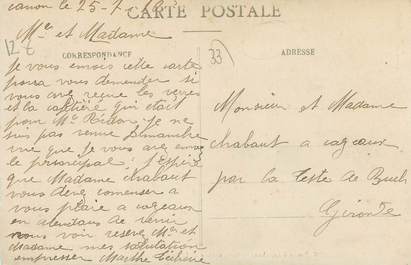 canon le 25-7-
CARTE POSTALE
Mr et Madame
12 €
33
CORRESPONDANCE
ADRESSE
je vous envois cette carte
poura vous demender si
vous avez recue les verres
et la caftière qui était
pour Mr je ne
suis pas venue dimanche
vue que je vous are envoy
le prinsinpal j'espère
que Madame chabaut
vous devez comenser a
vous plaie a cageaux
en atendans de venir
vous voir reserve Mr et
Madame mes salutation
empresser Marthe
Monsieur et Madame
chabaut a cageaux
par la Teste de Buch
Gironde